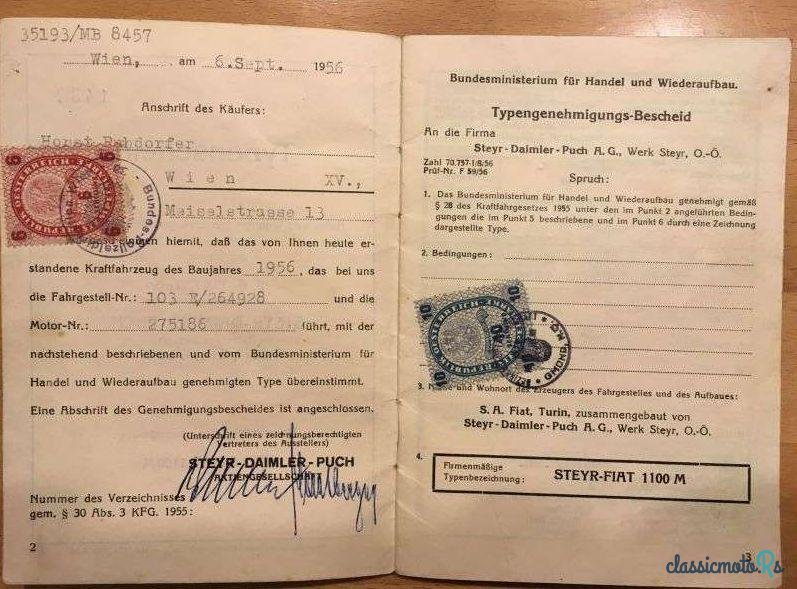 35193/MB 8457
Wien, am 6.Sept. 1956
Anschrift des Käufers:
Horst
Wien XV.,
Meiselstrasse 13
hiemit, daß das von Ihnen heute er-
standene Kraftfahrzeug des Baujahres 1956, das bei uns
die Fahrgestell-Nr.: 103 E/264928 und die
Motor-Nr.: 275186 führt, mit der
nachstehend beschriebenen und vom Bundesministerium für
Handel und Wiederaufbau genehmigten Type übereinstimmt.
Eine Abschrift des Genehmigungsbescheides ist angeschlossen.
(Unterschrift eines zeichnungsberechtigten
Vertreters des Ausstellers)
STEYR-DAIMLER-PUCH
AKTIENGESELLSCHAFT
Nummer des Verzeichnisses
gem. § 30 Abs. 3 KFG. 1955:
2
6
6
6
REPUBLIK ÖSTERREICH
Bundes
Bundesministerium für Handel und Wiederaufbau.
Typengenehmigungs-Bescheid
An die Firma
Steyr-Daimler-Puch A. G., Werk Steyr, O.-Ö.
Zahl 70.757-I/8/56
Prüf-Nr. F 59/56
Spruch:
1. Das Bundesministerium für Handel und Wiederaufbau genehmigt gemäß
§ 28 des Kraftfahrgesetzes 1955 unter den im Punkt 2 angeführten Bedin-
gungen die im Punkt 5 beschriebene und im Punkt 6 durch eine Zeichnung
dargestellte Type.
2. Bedingungen:
10
10
10
10
REPUBLIK ÖSTERREICH
3. Name und Wohnort des Erzeugers des Fahrgestelles und des Aufbaues:
S. A. Fiat, Turin, zusammengebaut von
Steyr-Daimler-Puch A. G., Werk Steyr, O.-Ö.
4.
Firmenmäßige
Typenbezeichnung: STEYR-FIAT 1100 M
3
classicmoto.Rs